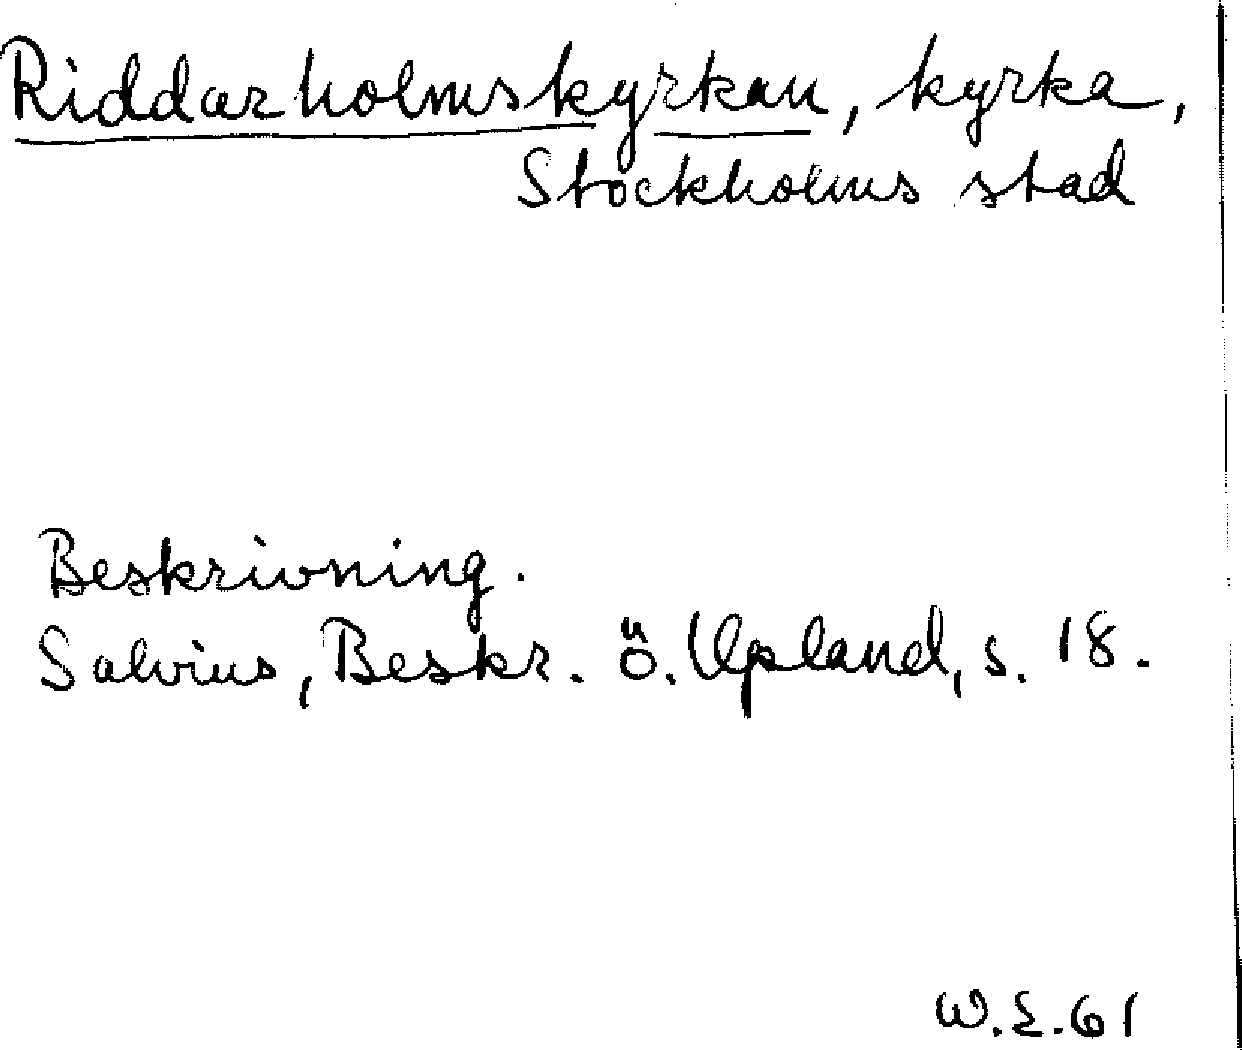 Riddarholmskyrkan, kyrka,
Stockholms stad
Beskrivning.
Salvius, Beskr. ö. Upland, s. 18.
W.E.61